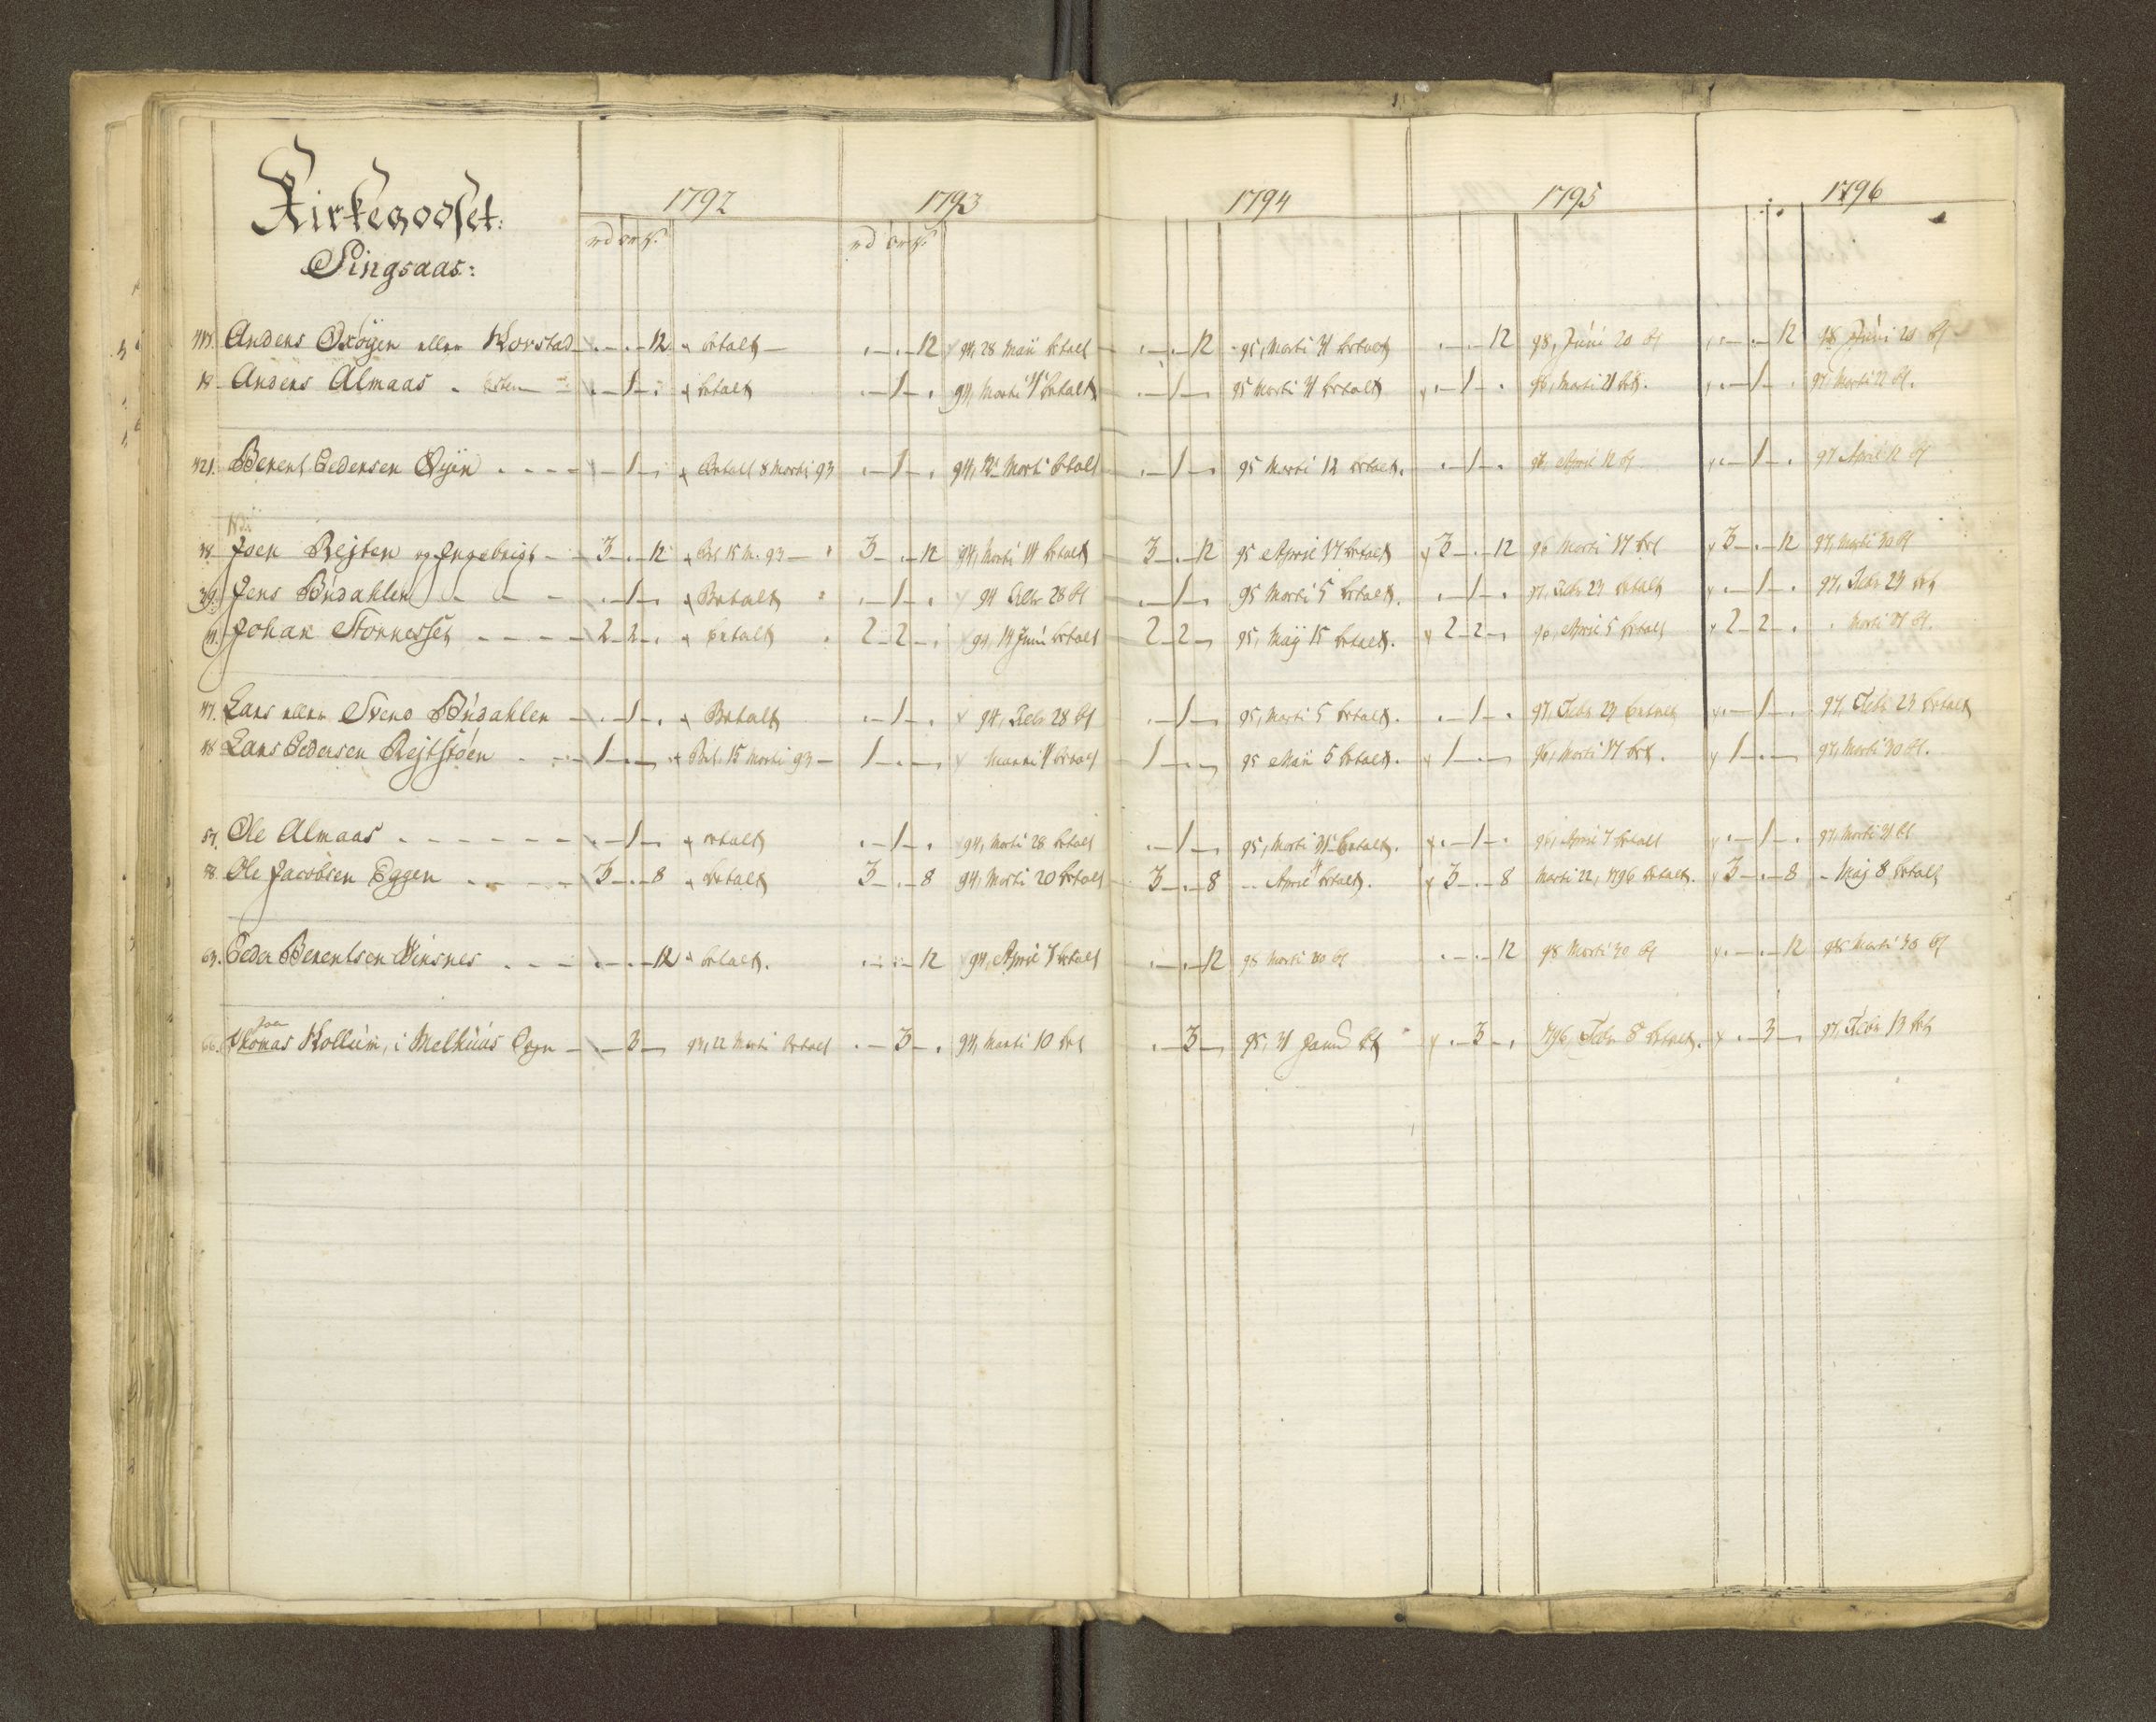 Kirkegodset:
Singsaas:
1792 1793 1794 1795 1796
rd ort s. rd ort s.
Anders Oxøyen eller Korstad . . 12 betalt . . 12 94, 28 Maii betalt . . 12 95, Marti 31 betalt . . 12 98, Júni 20 bt . . 12 98 Júni 20 bt
18 Anders Almaas . 1 . betalt . 1 . 94, Marti betalt . 1 . 95 Marti 31 betalt . 1 . 96, Marti 21 bet. . 1 . 97, Marti 22 bt.
421. Berent Pedersen Øyen . 1 . Betalt 8 Marti 93 . 1 . 94, 12 Marti betalt . 1 . 95 Marti 12 betalt. . 1 . 96, April 12 bt . 1 . 97 April 12 bt
38 Joen Rejten og Ingebrigt 3 . 12 Bet. 15 M. 93 3 . 12 94, Marti 14 betalt 3 . 12 95 April 17 betalt 3 . 12 96 Marti 17 bet 3 . 12 97, Marti 30 bt
39. Jens Búdahlen . 1 . Betalt . 1 . 94 Febr 28 bt . 1 . 95 Marti 5 betalt. . 1 . 97, Febr 23 betalt . 1 . 97, Febr 23 bet
41. Johan Storresset 2 2 . betalt 2 2 . 94, 14 Júni betalt 2 2 . 95, Maij 15 betalt. 2 2 . 96, April 5 betalt 2 2 . Marti 27 bt.
47. Lars eller Svend Búdahlen . 1 . Betalt . 1 . 94, Febr 28 bt . 1 . 95, Marti 5 betalt. . 1 . 97, Febr 23 betalt . 1 . 97, Febr 23 betalt
48 Lars Pedersen Rejtstøen 1 . . Bet. 15 Marti 93 1 . . Marti betalt 1 . . 95 Maii 5 betalt. 1 . . 96, Marti 17 bet. 1 . . 97, Marti 30 bt.
57. Ole Almaas . 1 . betalt . 1 . 94, Marti 28 betalt . 1 . 95, Marti 31 betalt. . 1 . 96, April 7 betalt . 1 . 97, Marti 31 bt
58. Ole Jacobsen Eggen 3 . 8 betalt 3 . 8 94, Marti 20 betalt 3 . 8 April betalt. 3 . 8 Marti 22, 1796 betalt. 3 . 8 Maj 8 betalt
63. Peder Berentsen Winsnes . . 12 betalt. . . 12 94, April 7 betalt . . 12 98 Marti 30 bt . . 12 98 Marti 30 bt . . 12 98 Marti 30 bt
66. Thomas Kollúm, i Melhúús . 3 . 93, 22 Marti betalt . 3 . 94, Marti 10 bet . 3 . 95, 31 Janu bt . 3 . 1796, Febr 8 betalt. . 3 . 97, Febr 13 bet